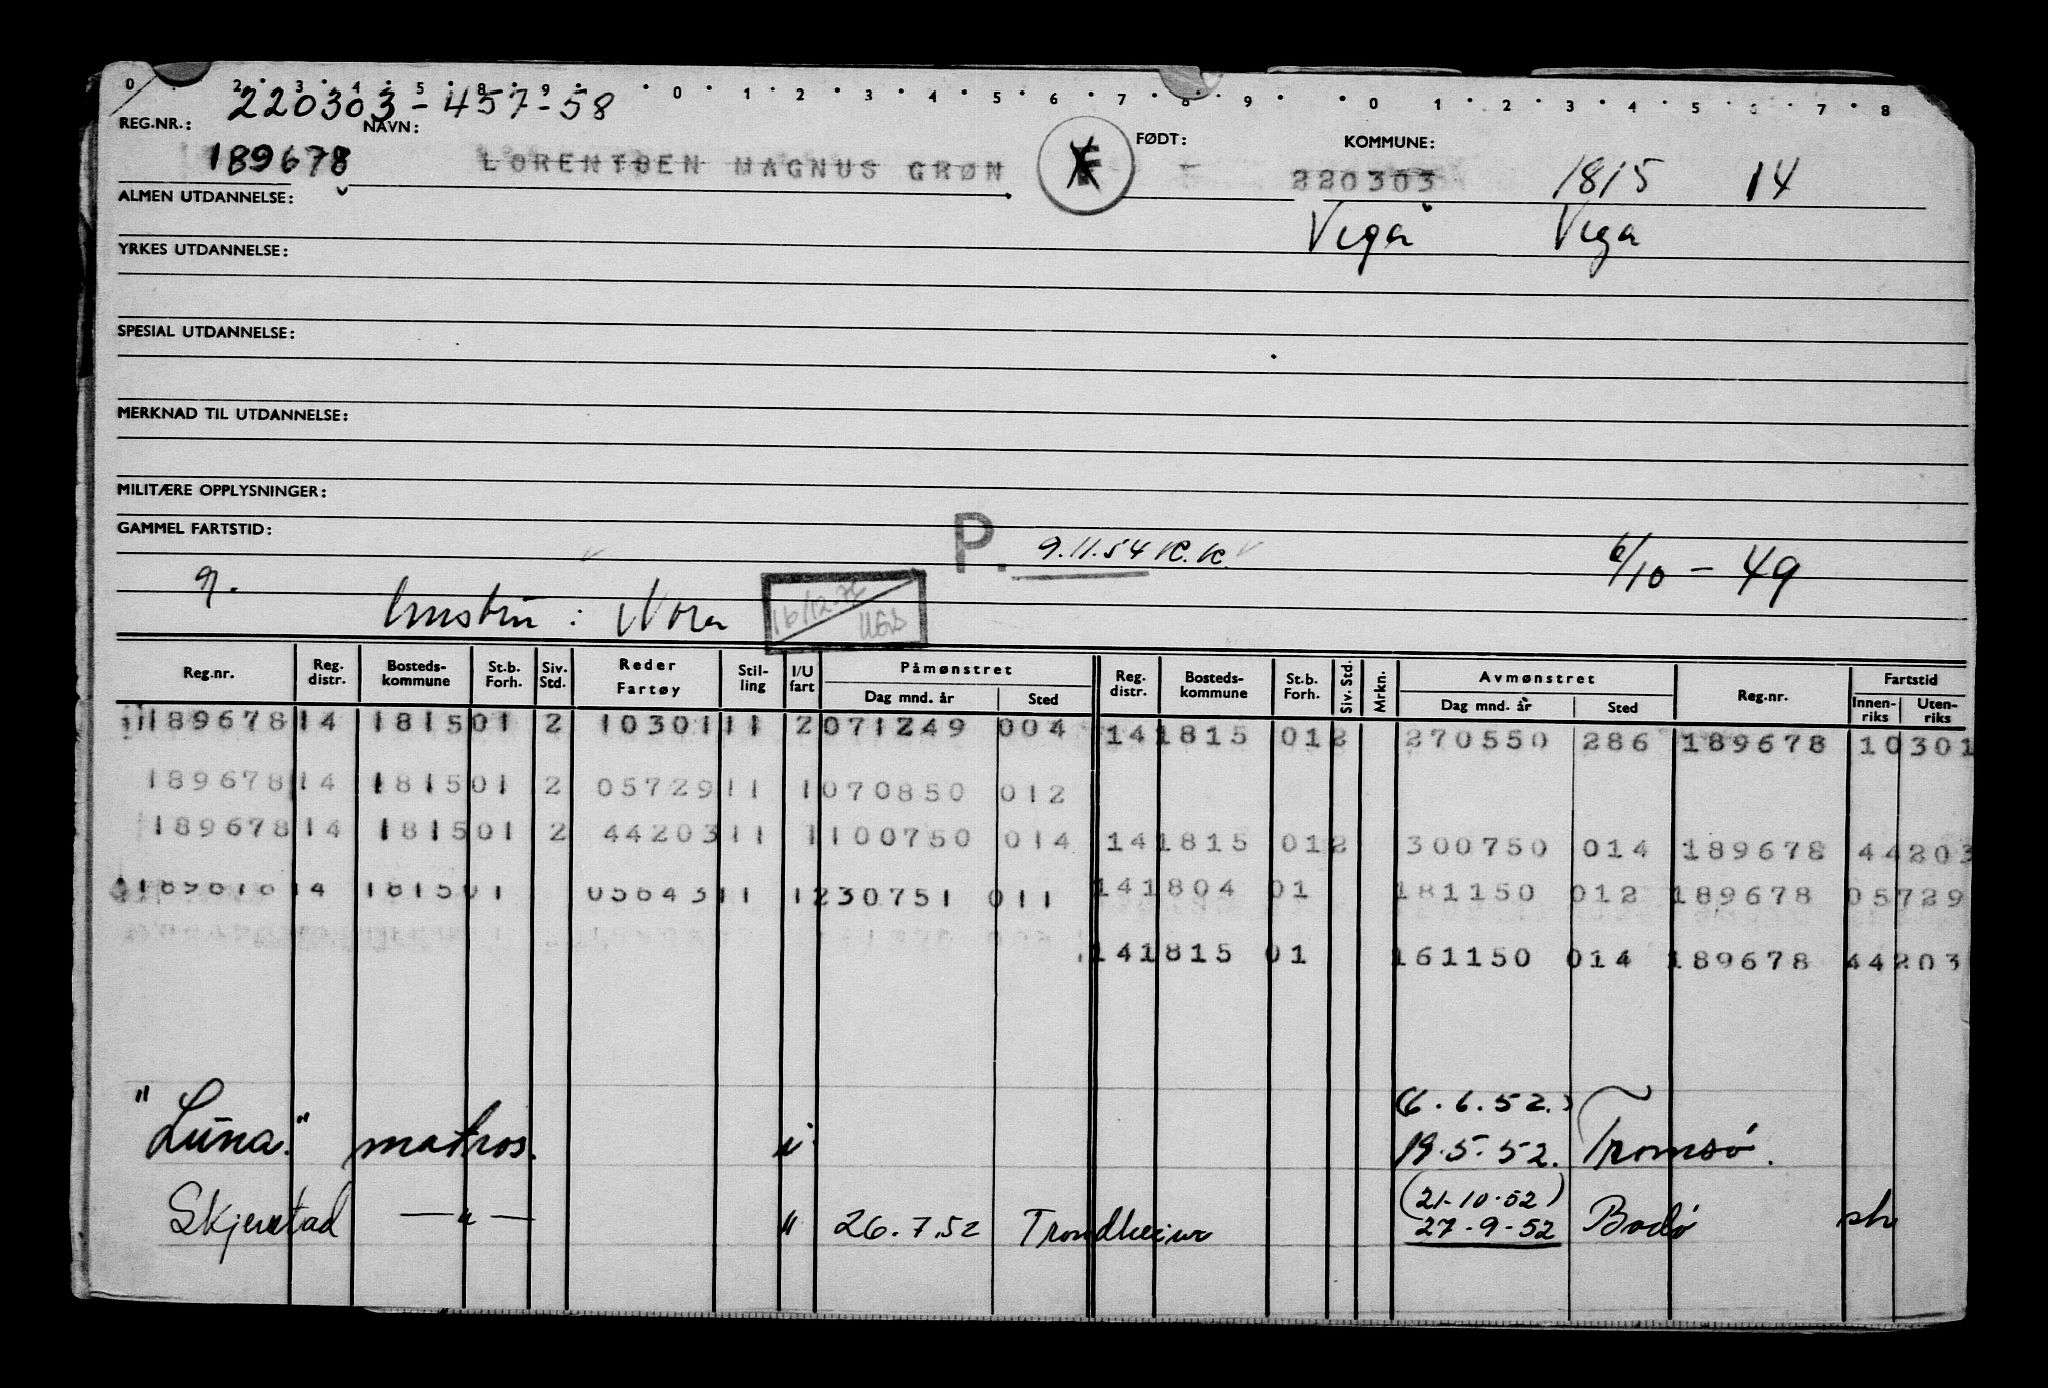 0 2 3 4 5 8 9 0 1 2 3 4 5 6 7 8 9 0 1 2 3 4 5 6 7 8
220303-457-58
REG.NR.: NAVN: FØDT: KOMMUNE:
189678 LORENTSEN MAGNUS GRØN 220303 1815 14
ALMEN UTDANNELSE: Vega Vega
YRKES UTDANNELSE:
SPESIAL UTDANNELSE:
MERKNAD TIL UTDANNELSE:
MILITÆRE OPPLYSNINGER:
GAMMEL FARTSTID: P. 9.11.54 K.K. 6/10-49
g. hustru: Nora 16/12-76
Reg.nr. Reg. distr. Bosteds-kommune St.b. Forh. Siv. Std. Reder Fartøy Stil-ling I/U fart Påmønstret Dag mnd. år Sted Reg. distr. Bosteds-kommune St.b. Forh. Siv. Std. Mrkn. Avmønstret Dag mnd. år Sted Reg.nr. Fartstid Innen-riks Uten-riks
189678 14 1815 01 2 10301 11 2 071249 004 14 1815 01 2 270550 286 189678 10301
189678 14 1815 01 2 05729 11 1 070850 012
189678 14 1815 01 2 44203 11 1 100750 014 14 1815 01 2 300750 014 189678 44203
189678 14 1815 01 05643 11 1 230751 011 14 1804 01 181150 012 189678 05729
14 1815 01 161150 014 189678 44203
(6.6.52.)
"Luna." matros. i 19.5.52. Tromsø.
(21.10.52)
Skjerstad —"— " 26.7.52 Trondheim 27-9-52 Bodø sh